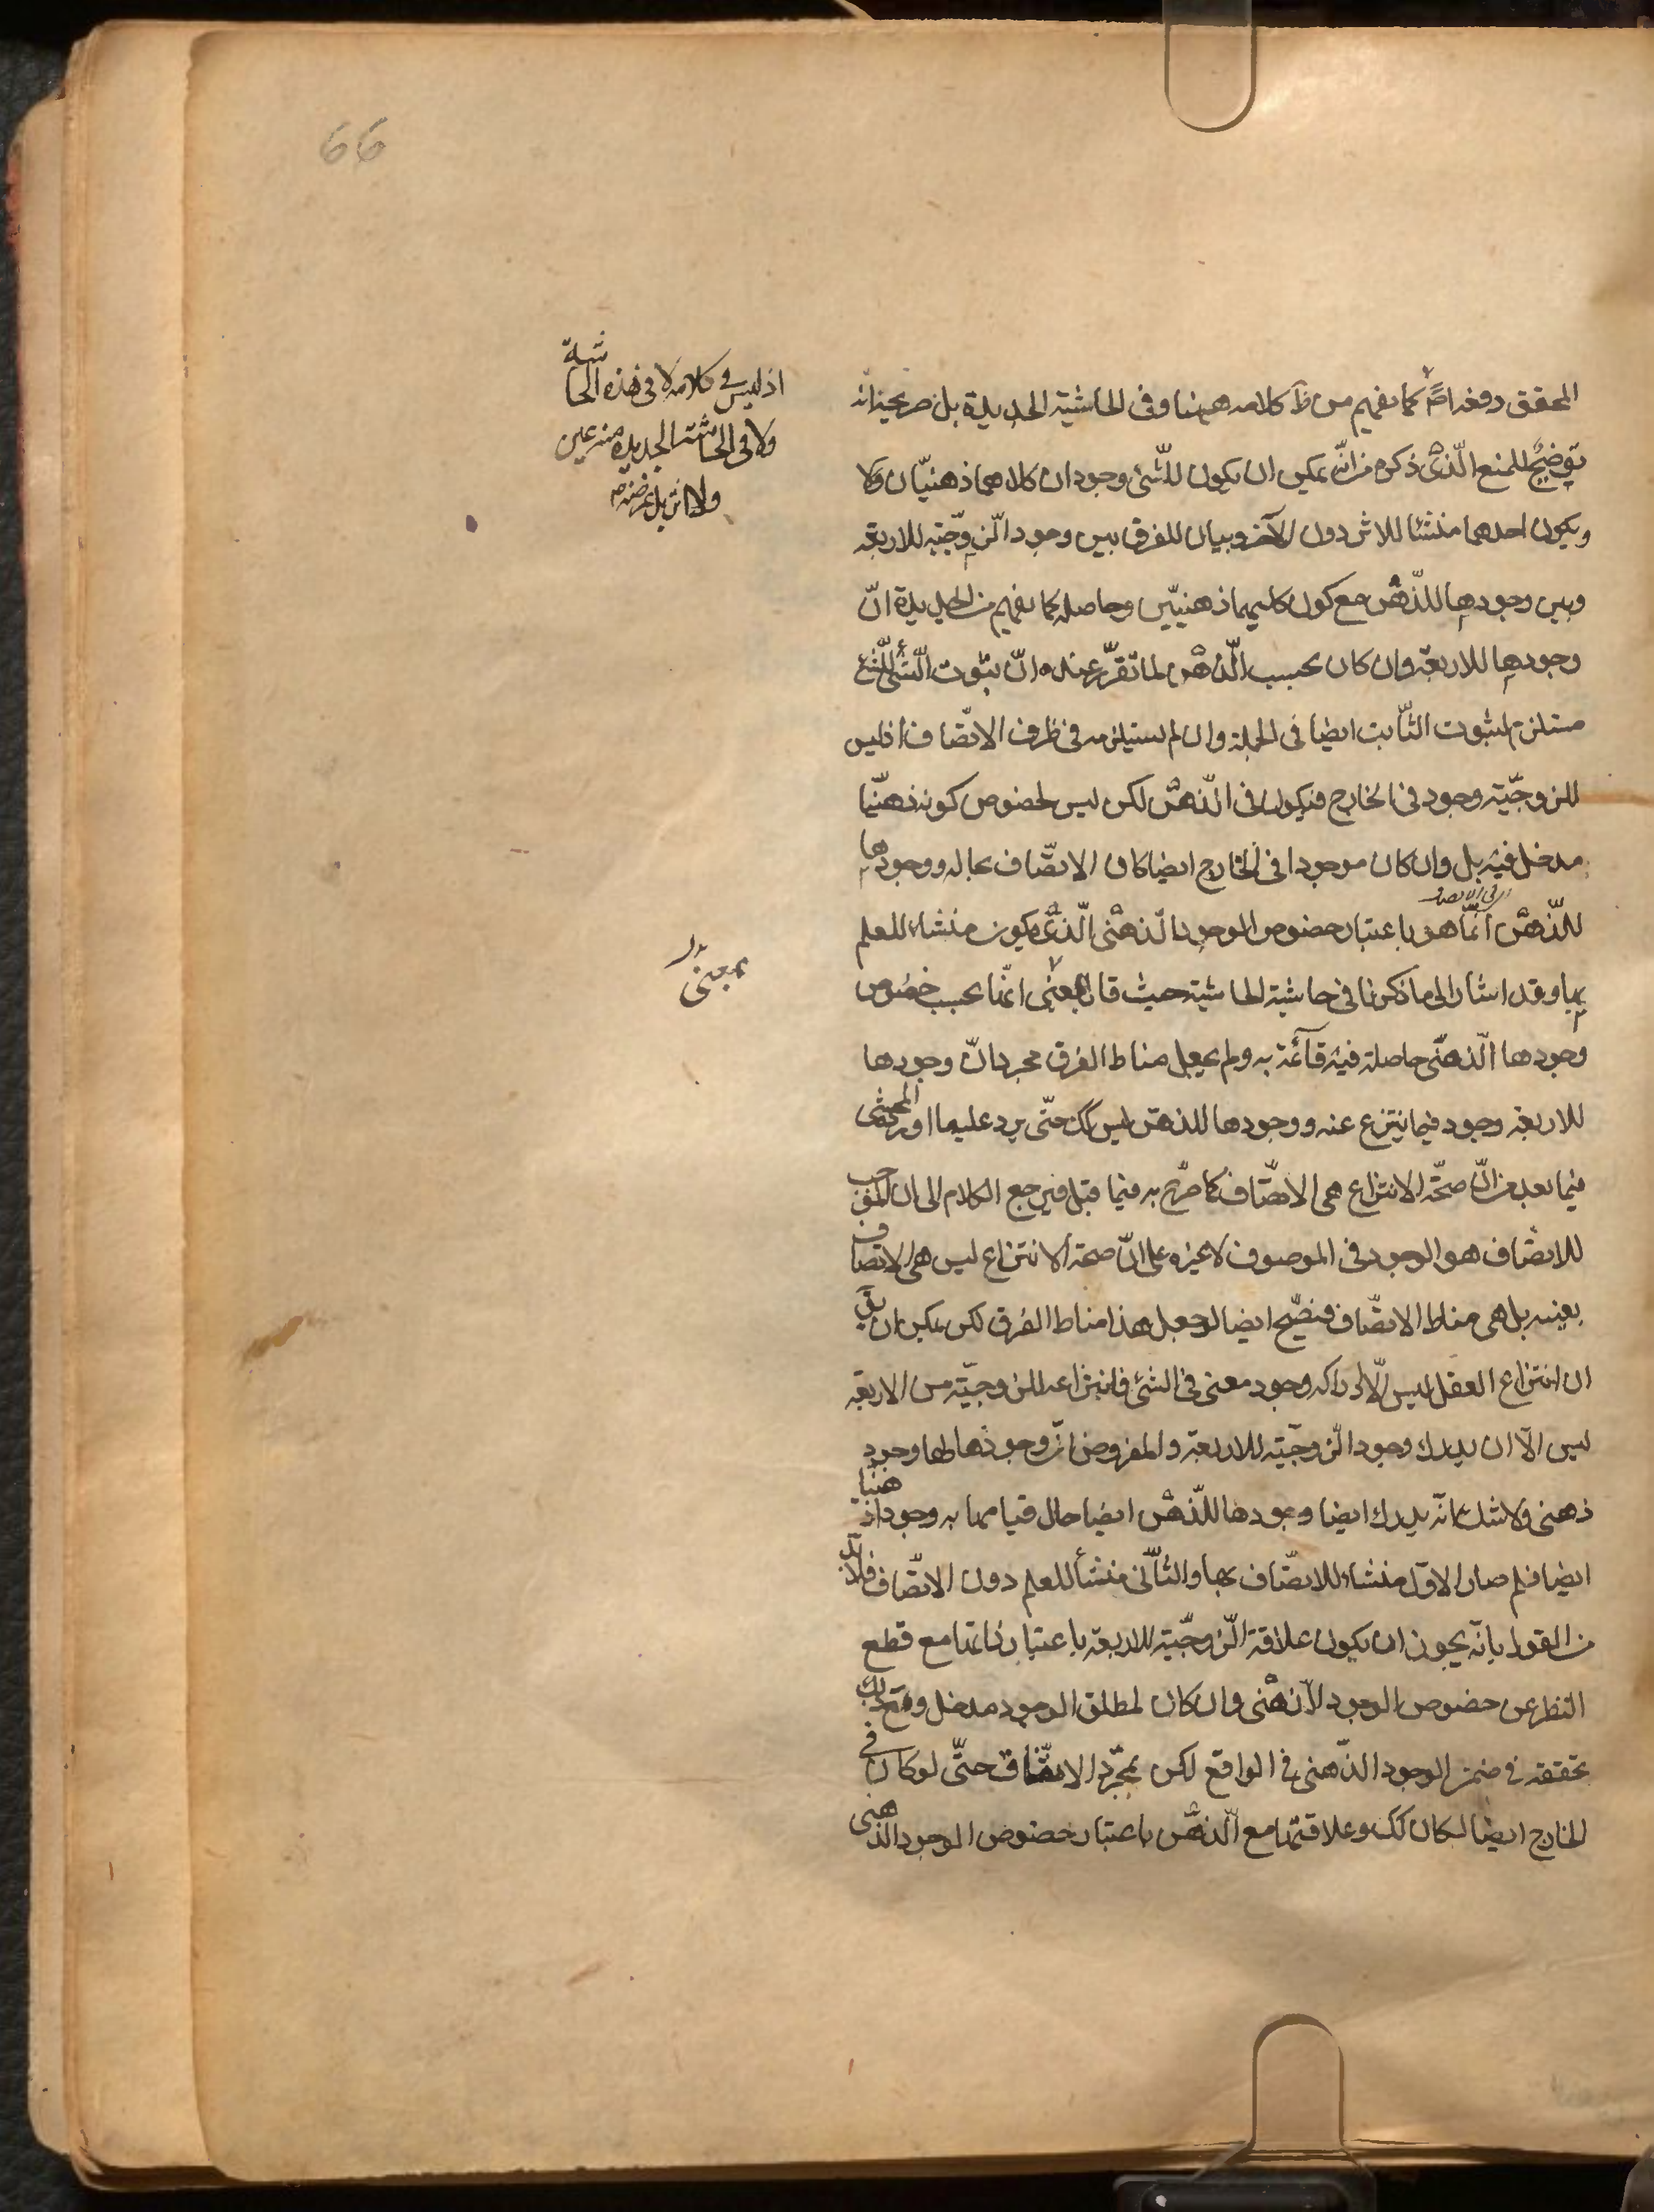 66
المحقق دفعه امّا كما يفهم من ظ كلامه ههنا وفى الحاشية الجديدة بل صريحه انه
توضيح للمنع الّذى ذكره من انّه يمكن ان يكون للشّئ وجودان كلاهما ذهنيّان ولا
ويكون احدهما منشئا للاثر دون الآخر وبيان للفرق بين وجود الزّوجّية للاربعة
وبين وجودها للذّهن مع كون كليهما ذهنيّين وحاصله كما يفهم من الجديدة انّ
وجودها للاربعة وان كان بحسب الذّهن لما تقرّر عنده انّ ثبوت الشّئ للشّئ
مستلزم لثبوت الثّابت ايضا فى الجملة وان لم يستلزمه فى ظرف الاتّصاف اذ ليس
للزوجّية وجود فى الخارج فيكون فى الذّهن لكن ليس لخصوص كونه ذهنيّا
مدخل فيه بل وان كان موجودا فى الخارج ايضا كان الاتّصاف بحاله ووجودها
للذّهن انّما هو باعتبار خصوص الموجود الذّهنى الّذى يكون منشاء للعلم
بها وقد اشار الى ما ذكرنا فى حاشية الحاشية حيث قال بمعنى انّها بحسب خصوص
وجودها الذّهنى حاصلة فيه قائمة به ولم يجعل مناط الفرق مجرد انّ وجودها
للاربعة وجود فيما ينتزع عنه ووجودها للذهن ليس كك حتّى يرد عليه ما اورده المحشى
فيما بعد من انّ صحّة الانتزاع هى الاتّصاف كما صرّح به فيما قبل فيرجع الكلام الى ان الموجب
للاتّصاف هو الوجود فى الموصوف لا غيره على انّ صحة الانتزاع ليس هى الاتصاف
بعينه بل هى مناط الاتّصاف فيصّح ايضا لو جعل هذا مناط الفرق لكن يمكن ان يق
ان انتزاع العقل ليس الّا ادراكه وجود معنى فى الشئ فانتزاعه للزوجيّة من الاربعة
ليس الّا ان يدرك وجود الزّوجّية للاربعة والمفروض انّ وجودها لها وجود
ذهنى ولا شك انّه يدرك ايضا وجودها للذّهن ايضا حال قيامها به وجودا ذهنيا
ايضا فلم صار الاوّل منشاء للاتصّاف بها والثّانى منشأ للعلم دون الاتّصاف فلا بّد
من القول بانّه يجوز ان يكون علاقة الزّوجّية للاربعة باعتبار ذاتها مع قطع
النظر عن خصوص الوجود الذّهنى وان كان لمطلق الوجود مدخل ومع ذلك
تحققه فى ضمن الوجود الذّهنى فى الواقع لكن بمجرّد الاتّفاق حتّى لو كان فى
الخارج ايضا لكان كك وعلاقتها مع الذّهن باعتبار خصوص الموجود الذهنى
اذ ليس فى كلامه لا فى هذه الحاشية
ولا فى الحاشية الجديدة منه عين
ولا اثر بل غرضه
بمعنى
بدل